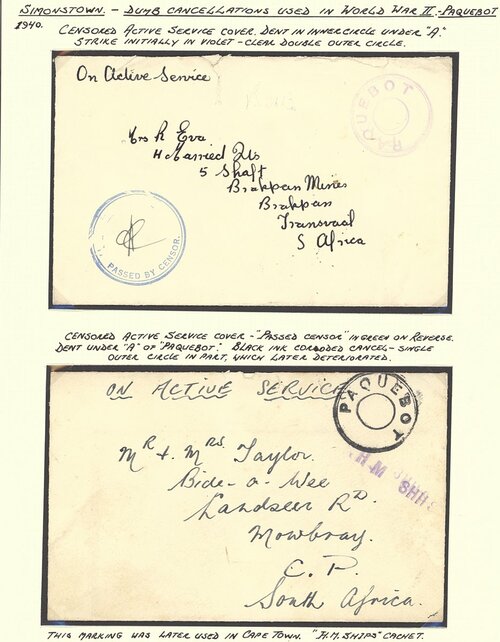 SIMONSTOWN. - DUMB CANCELLATIONS USED IN WORLD WAR II. - PAQUEBOT
1940.
CENSORED ACTIVE SERVICE COVER. DENT IN INNER CIRCLE UNDER "A."
STRIKE INITIALLY IN VIOLET - CLEAR DOUBLE OUTER CIRCLE.
On Active Service
PAQUEBOT
Mrs R Eva
H Married Qts
5 Shaft
Brakpan Mines
Brakpan
Transvaal
S Africa
PASSED BY CENSOR.
CENSORED ACTIVE SERVICE COVER - "PASSED CENSOR" IN GREEN ON REVERSE.
DENT UNDER "A" OF "PAQUEBOT." BLACK INK CORRODED CANCEL - SINGLE
OUTER CIRCLE IN PART, WHICH LATER DETERIORATED.
ON ACTIVE SERVICE
PAQUEBOT
H M SHIPS
Mr & Mrs Taylor.
Bide-a-Wee
Landseer Rd.
Mowbray.
C. P.
South Africa.
THIS MARKING WAS LATER USED IN CAPE TOWN. "H.M. SHIPS" CACHET.